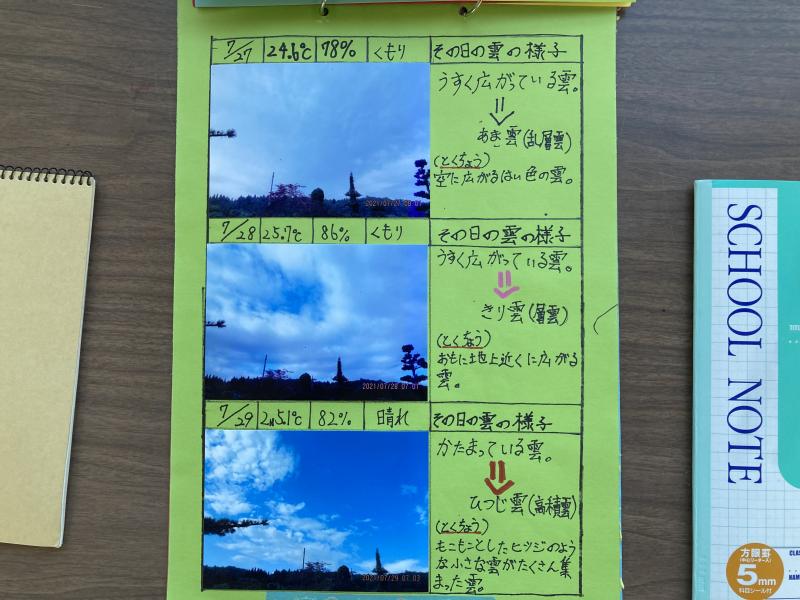 7/27 24.6℃ 78% くもり その日の雲の様子
うすく広がっている雲。
あま雲(乱層雲)
(とくちょう)
空に広がるはい色の雲。
2021/07/27
7/28 25.7℃ 86% くもり その日の雲の様子
うすく広がっている雲。
きり雲(層雲)
(とくちょう)
おもに地上近くに広がる
雲。
2021/07/28 07:01
7/29 25.1℃ 82% 晴れ その日の雲の様子
かたまっている雲。
ひつじ雲(高積雲)
(とくちょう)
もこもことしたヒツジのよう
な小さな雲がたくさん集
まった雲。
2021/07/29 07:03
SCHOOL NOTE
方眼罫
5mm
科目シール付
CLASS
NAM